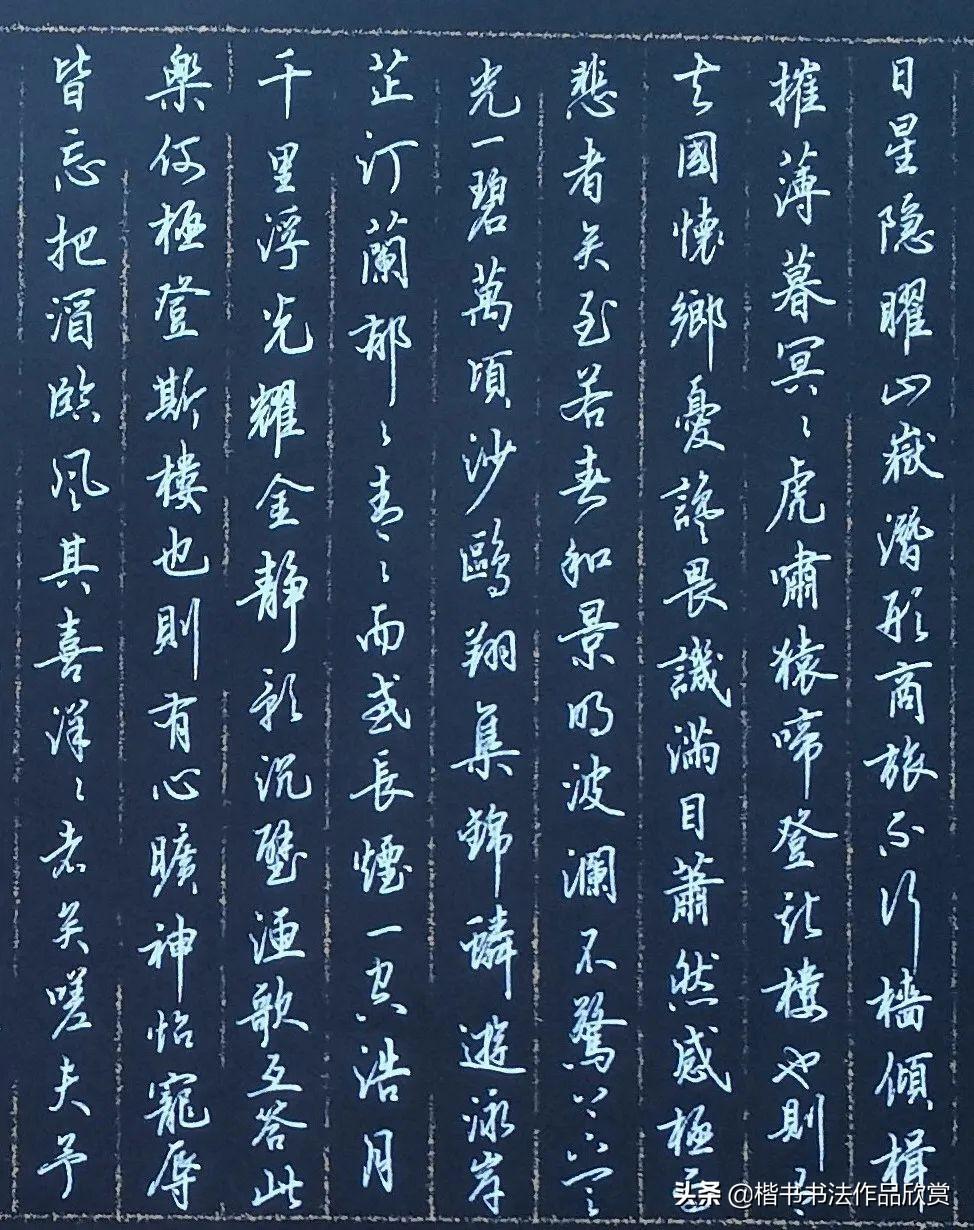 日星隐曜山嶽潛形商旅不行檣傾楫
摧薄暮冥〻虎嘯猿啼登斯樓也則有
去國懷鄉憂讒畏譏滿目蕭然感極而
悲者矣至若春和景明波瀾不驚上下天
光一碧萬頃沙鷗翔集錦鱗遊泳岸
芷汀蘭郁〻青〻而或長煙一空浩月
千里浮光耀金静影沉璧漁歌互答此
樂何極登斯樓也則有心曠神怡寵辱
皆忘把酒臨風其喜洋〻者矣嗟夫予
头条 @楷书书法作品欣赏